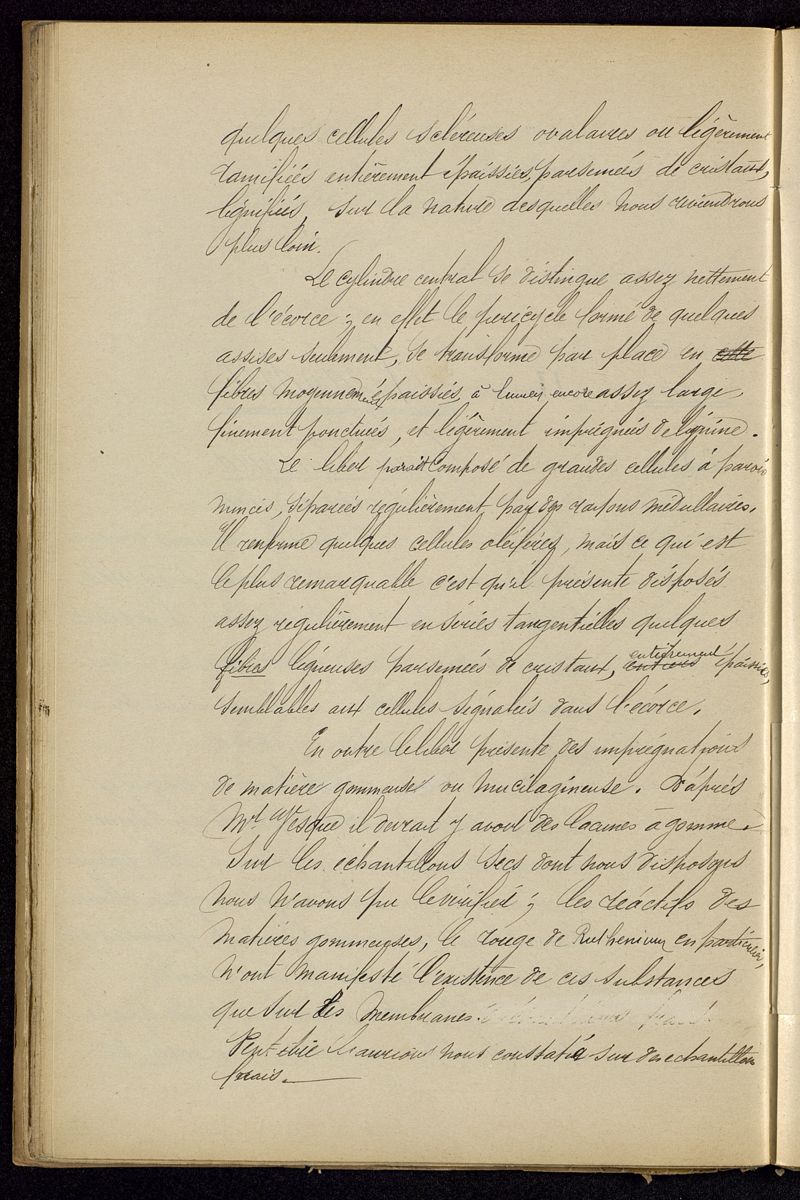 quelques cellules scléreuses ovalaires ou légèrement
ramifiées entièrement épaissies, parsemées de cristaux,
lignifiées, sur la nature desquelles nous reviendrons
plus loin.
Le cylindre central se distingue assez nettement
de l'écorce ; en effet le péricycle formé de quelques
assises seulement, se transforme par place en cette
fibres moyennement épaissies, à lumen encore assez large,
finement ponctuées, et légèrement imprégnées de lignine.
Le liber paraît composé de grandes cellules à parois
minces, séparées régulièrement par des rayons médullaires.
Il renferme quelques cellules oléifères, mais ce qui est
le plus remarquable c'est qu'il présente disposés
assez régulièrement en séries tangentielles quelques
fibres ligneuses parsemées de cristaux, entièrement épaissies,
semblables aux cellules signalées dans l'écorce.
En outre le liber présente des imprégnations
de matière gommeuse ou mucilagineuse. D'après
Mr Vesque il devrait y avoir des lacunes à gomme.
Sur les échantillons secs dont nous disposons
nous n'avons pu le vérifier ; les réactifs des
matières gommeuses, le rouge de Ruthenium en particulier,
n'ont manifesté l'existence de ces substances
que sur les membranes
Peut-être l'aurions nous constaté sur des echantillons
frais.